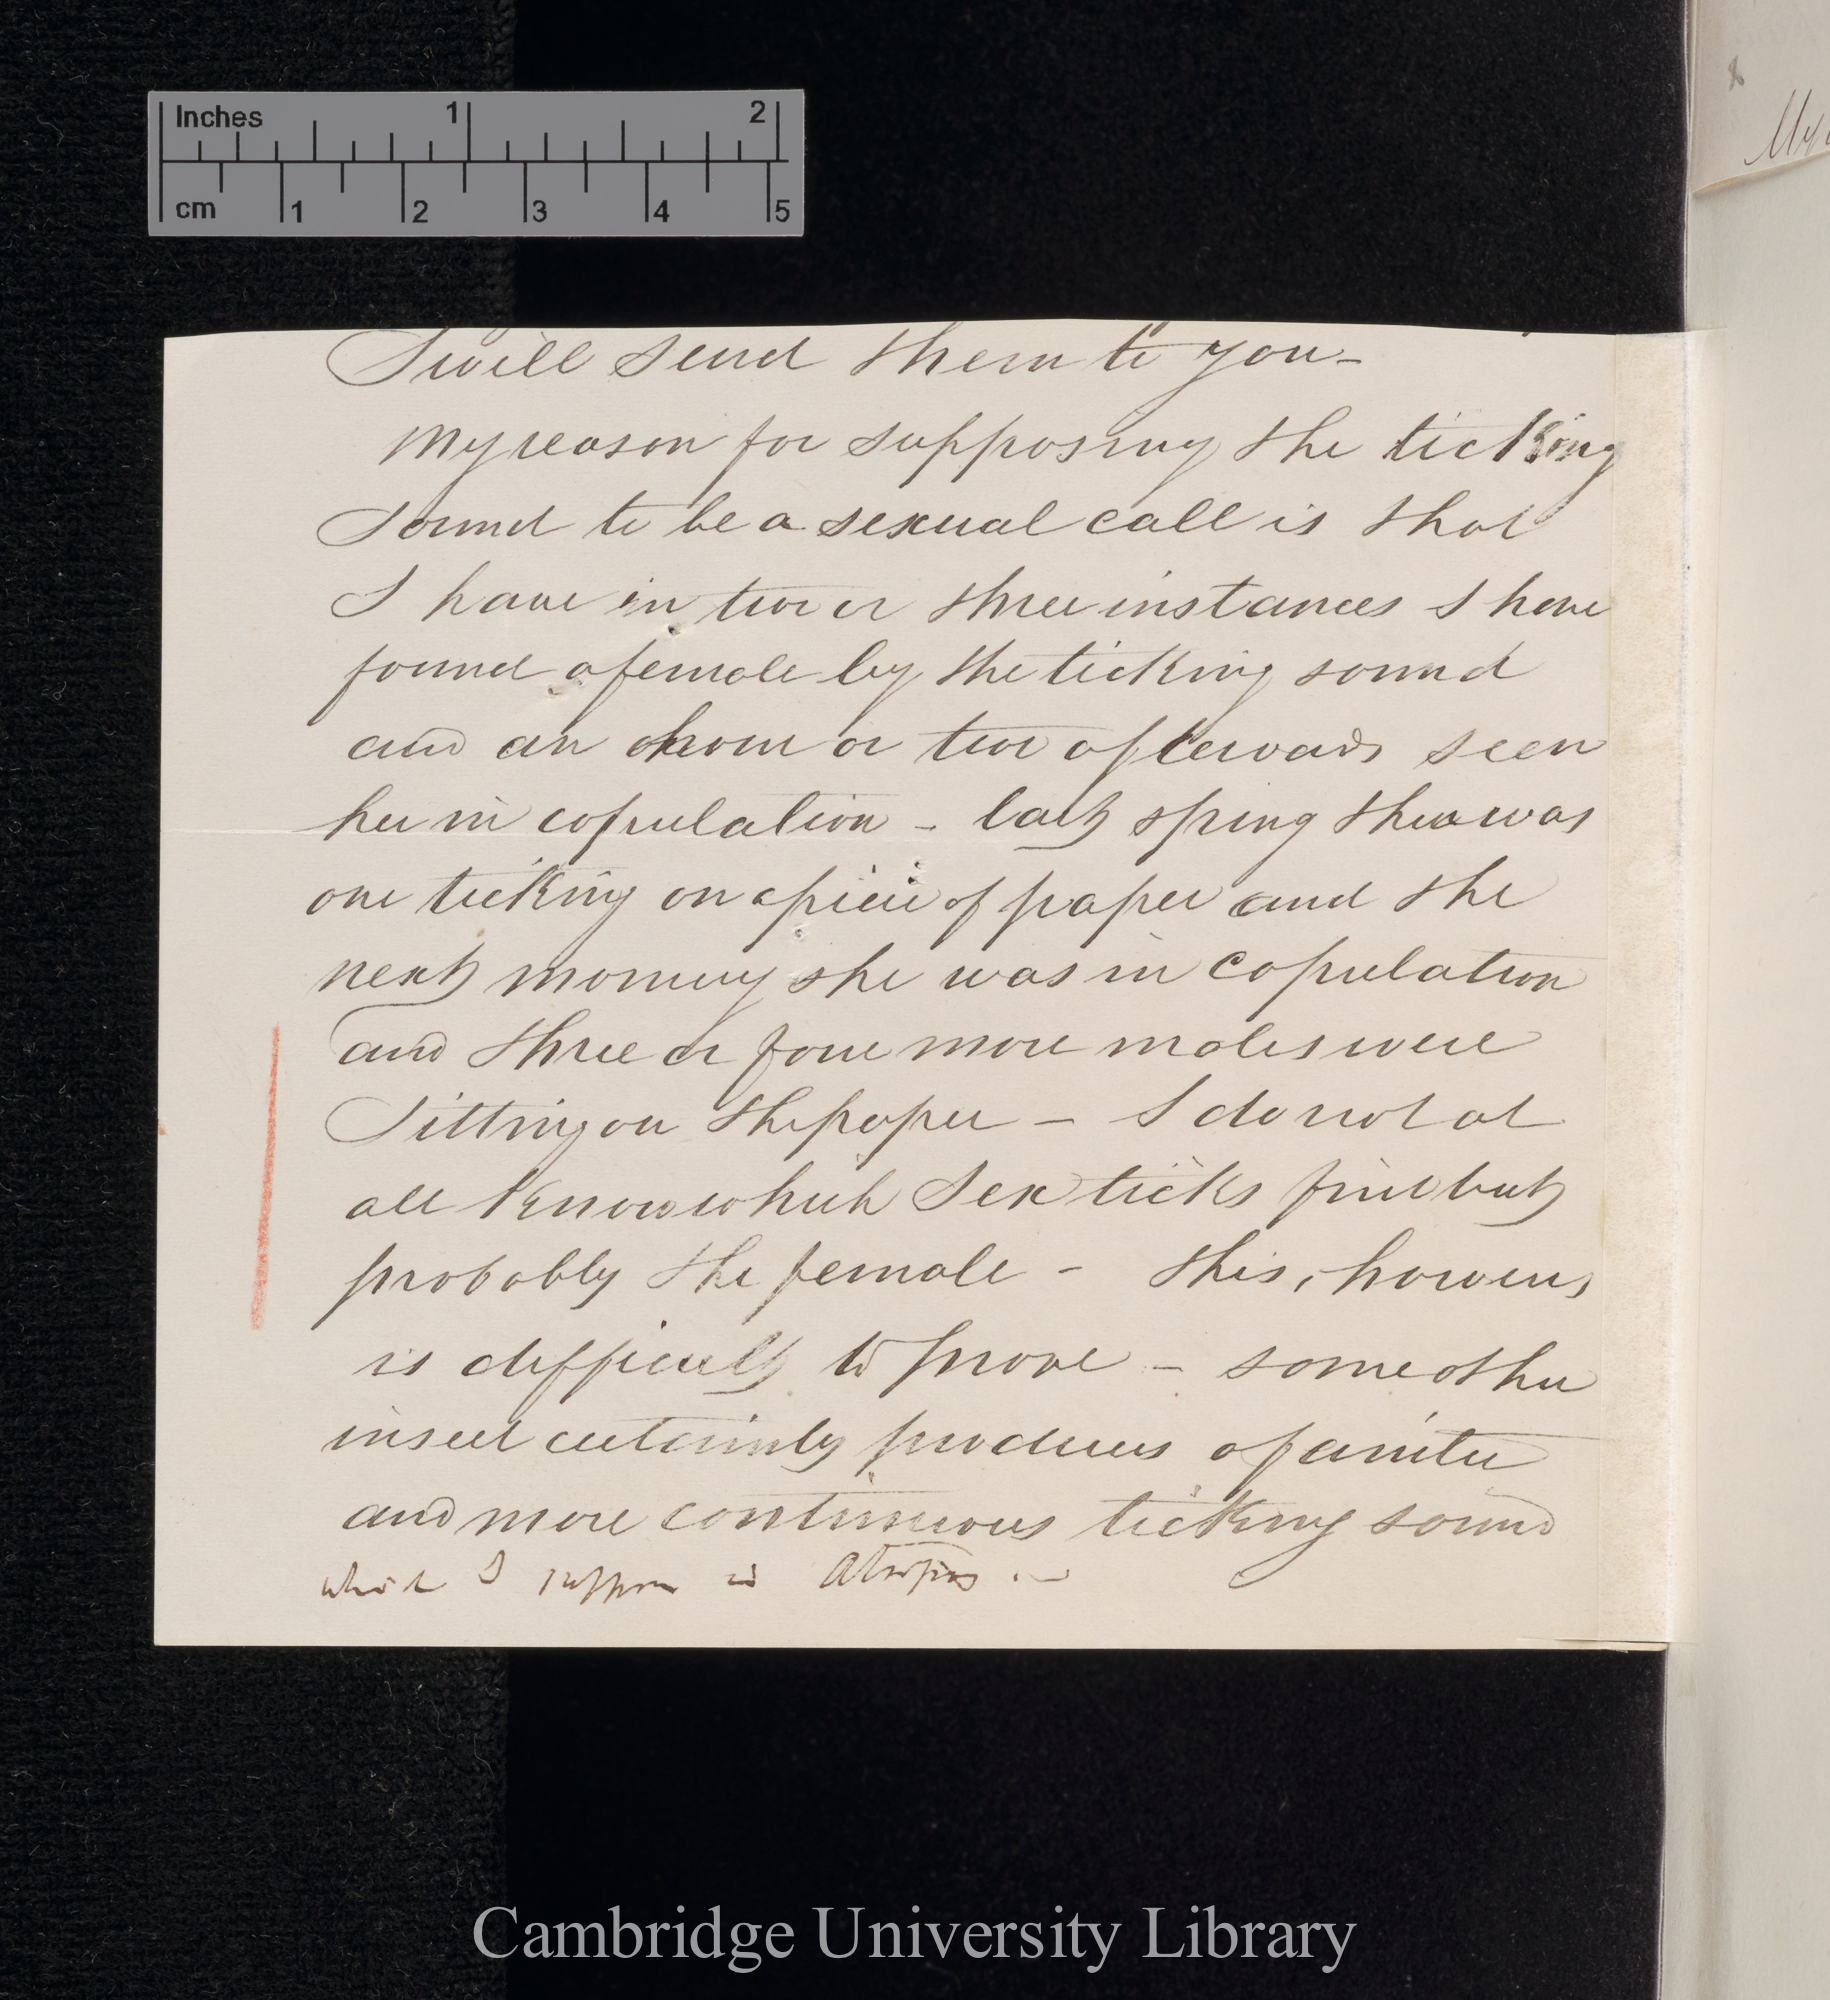 Inches 1 2
cm 1 2 3 4 5
I will send them to you –
My reason for supposing the ticking
Sound to be a sexual call is that
I have in two or three instances I have
found a female by the ticking sound
and an hour or two afterwards seen
her in copulation – last spring there was
one ticking on a piece of paper and the
next morning she was in copulation
and three or four more males were
Sitting on the paper – I do not at
all know which Sex ticks first but
probably the female – this, however,
is difficult to prove – some other
insect certainly produces a fainter
and more continuous ticking sound
which I suppose is Atropos. –
Cambridge University Library